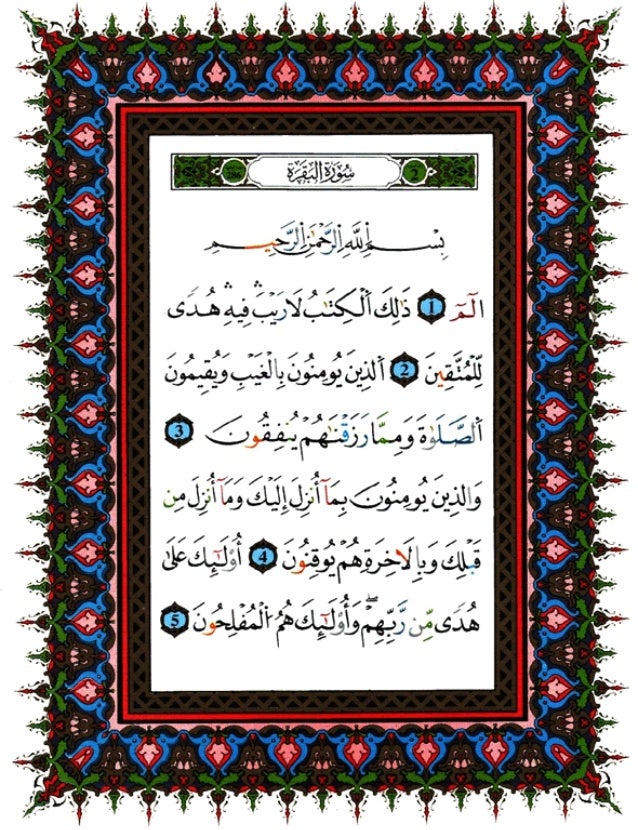 2 سُورَةُ البَقَرَة
بِسْمِ اِللَّهِ اِلرَّحْمَٰنِ اِلرَّحِيمِ
الٓمٓ 1 ذَٰلِكَ اَلْكِتَٰبُ لَا رَيْبَۛ فِيهِۛ هُدًى
لِّلْمُتَّقِينَ 2 اَلذِينَ يُومِنُونَ بِالْغَيْبِ وَيُقِيمُونَ
اَلصَّلَوٰةَ وَمِمَّا رَزَقْنَٰهُمْ يُنفِقُونَ 3
وَالذِينَ يُومِنُونَ بِمَآ أُنزِلَ إِلَيْكَ وَمَآ أُنزِلَ مِن
قَبْلِكَ وَبِالَاخِرَةِ هُمْ يُوقِنُونَ 4 أُوْلَٰٓئِكَ عَلَىٰ
هُدًى مِّن رَّبِّهِمْۖ وَأُوْلَٰٓئِكَ هُمُ اُلْمُفْلِحُونَ 5